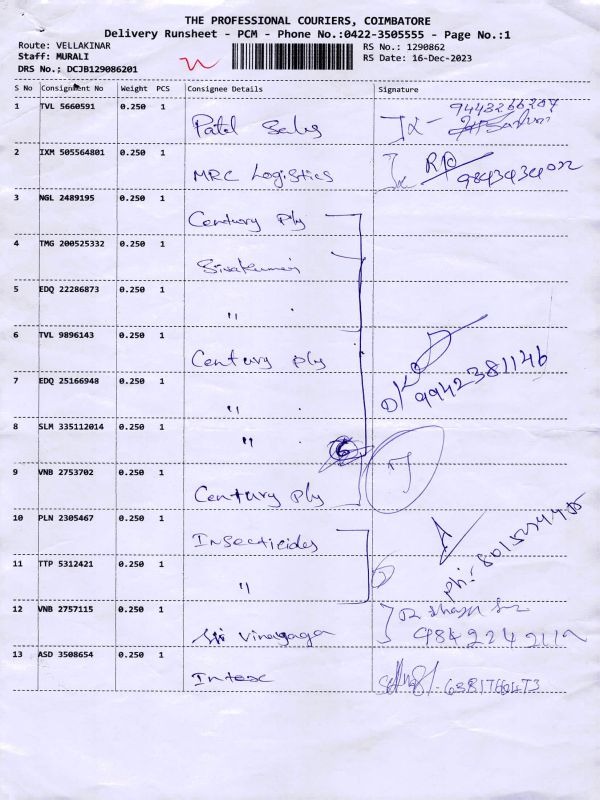 THE PROFESSIONAL COURIERS, COIMBATORE
Delivery Runsheet - PCM - Phone No.:0422-3505555 - Page No.:1
Route: VELLAKINAR
RS No.: 1290862
Staff: MURALI
RS Date: 16-Dec-2023
DRS No.; DCJB129086201
S No Consignment No Weight PCS Consignee Details Signature
1 TVL 5660591 0.250 1 Patel Sales
2 IXM 505564801 0.250 1 MRC Logistics
3 NGL 2489195 0.250 1 Century Ply
4 TMG 200525332 0.250 1 Sivakumar
5 EDQ 22286873 0.250 1 "
6 TVL 9896143 0.250 1 Century ply 9942381146
7 EDQ 25166948 0.250 1 "
8 SLM 335112014 0.250 1 " 6
9 VNB 2753702 0.250 1 Century ply
10 PLN 2305467 0.250 1 Insecticides
11 TTP 5312421 0.250 1 " ph:
12 VNB 2757115 0.250 1 Sri Vinayaga
13 ASD 3508654 0.250 1 Intex